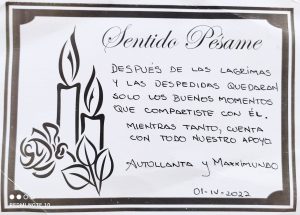 Sentido Pésame
DESPUÉS DE LAS LAGRIMAS
Y LAS DESPEDIDAS QUEDARAN
SOLO LOS BUENOS MOMENTOS
QUE COMPARTISTE CON ÉL.
MIENTRAS TANTO, CUENTA
CON TODO NUESTRO APOYO
AUTOLLANTA Y MAXXIMUNDO
01-IV-2022
REDMI NOTE 10